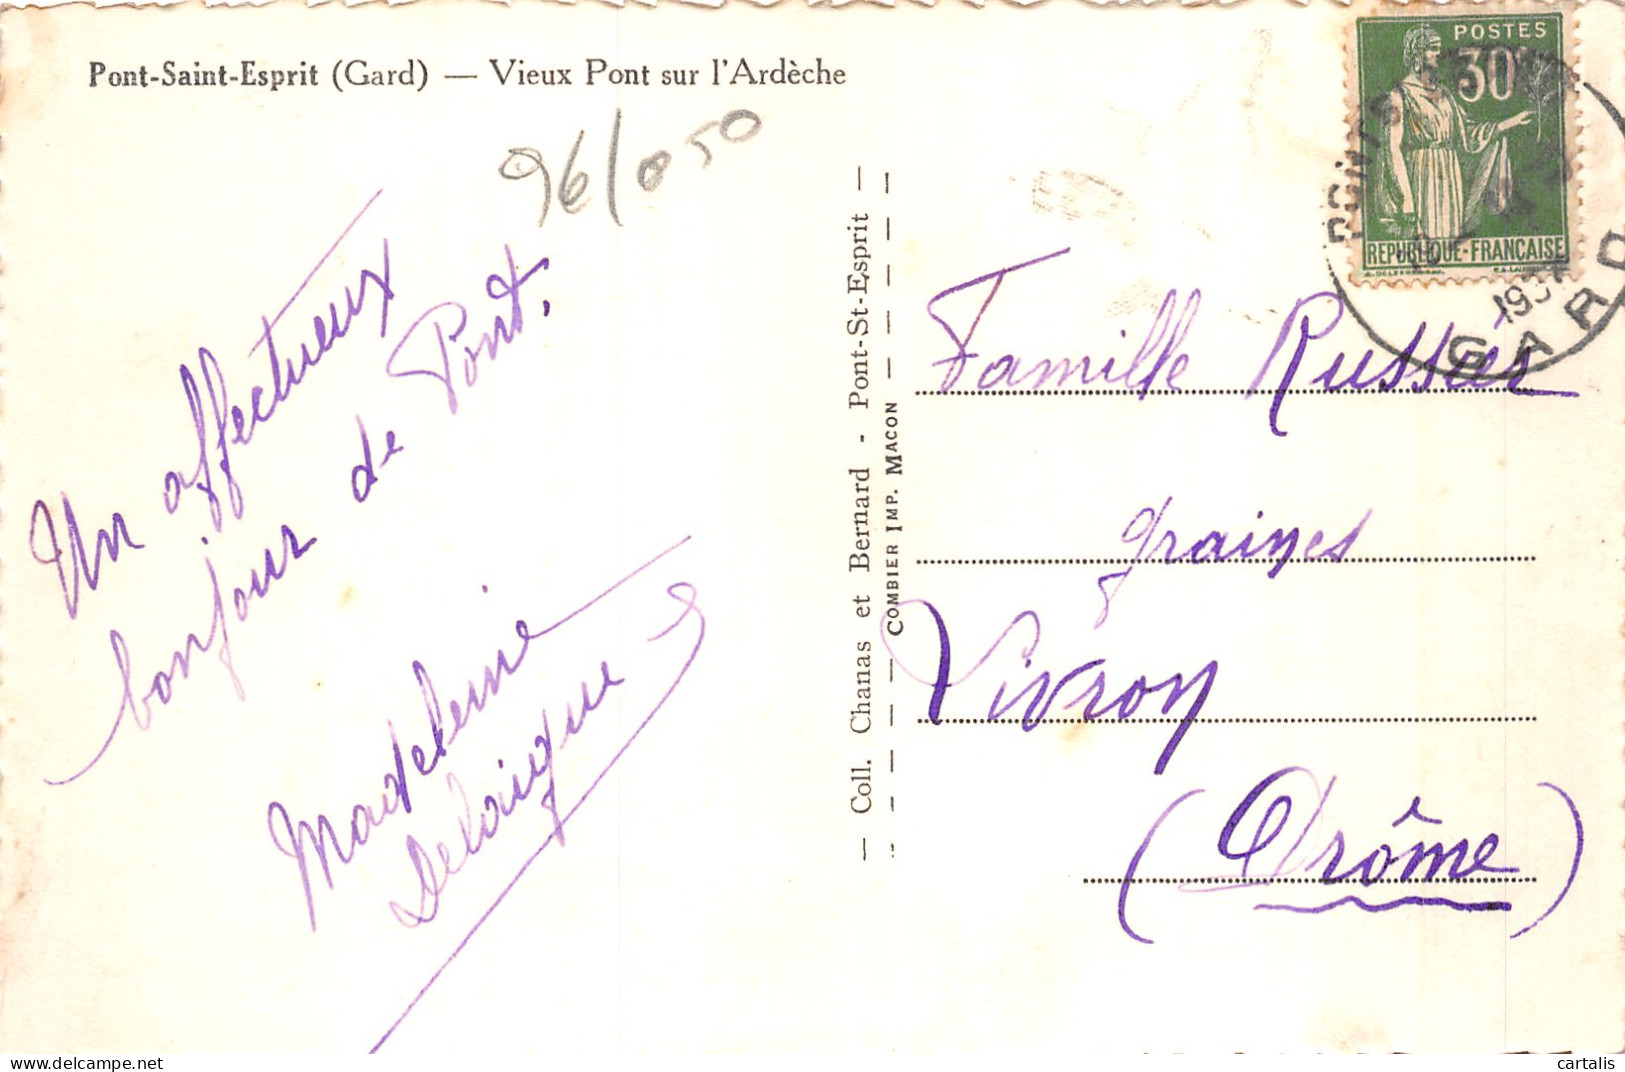 Pont-Saint-Esprit (Gard) — Vieux Pont sur l'Ardèche
96/050
Un affectueux
bonjour de Pont.
Madeleine
— Coll. Chanas et Bernard - Pont-St-Esprit —
COMBIER IMP. MACON
POSTES
30c
REPUBLIQUE-FRANÇAISE
PONT-ST
GARD
Famille
graines
Livron
(Drôme)
delcampe.net
cartalis